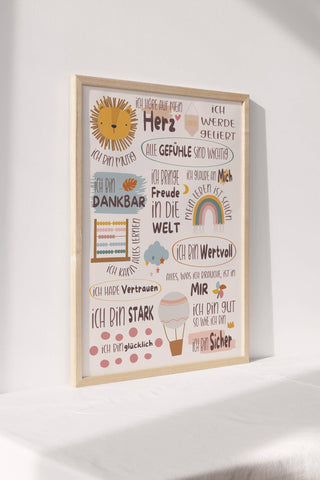 ICH HÖRE AUF MEIN
Herz
ICH
WERDE
GELIEBT
ICH BIN MUTIG
ALLE GEFÜHLE SIND WICHTIG
ICH BIN
DANKBAR
ICH BRINGE
Freude
IN DIE
WELT
ICH GLAUBE AN Mich
MEIN LEBEN IST SCHÖN
ICH KANN ALLES LERNEN
ICH BIN Wertvoll
ALLES, WAS ICH BRAUCHE, IST IN
MIR
ICH HABE Vertrauen
ICH BIN STARK
ICH BIN GUT
SO WIE ICH BIN
ICH BIN glücklich
ICH BIN Sicher